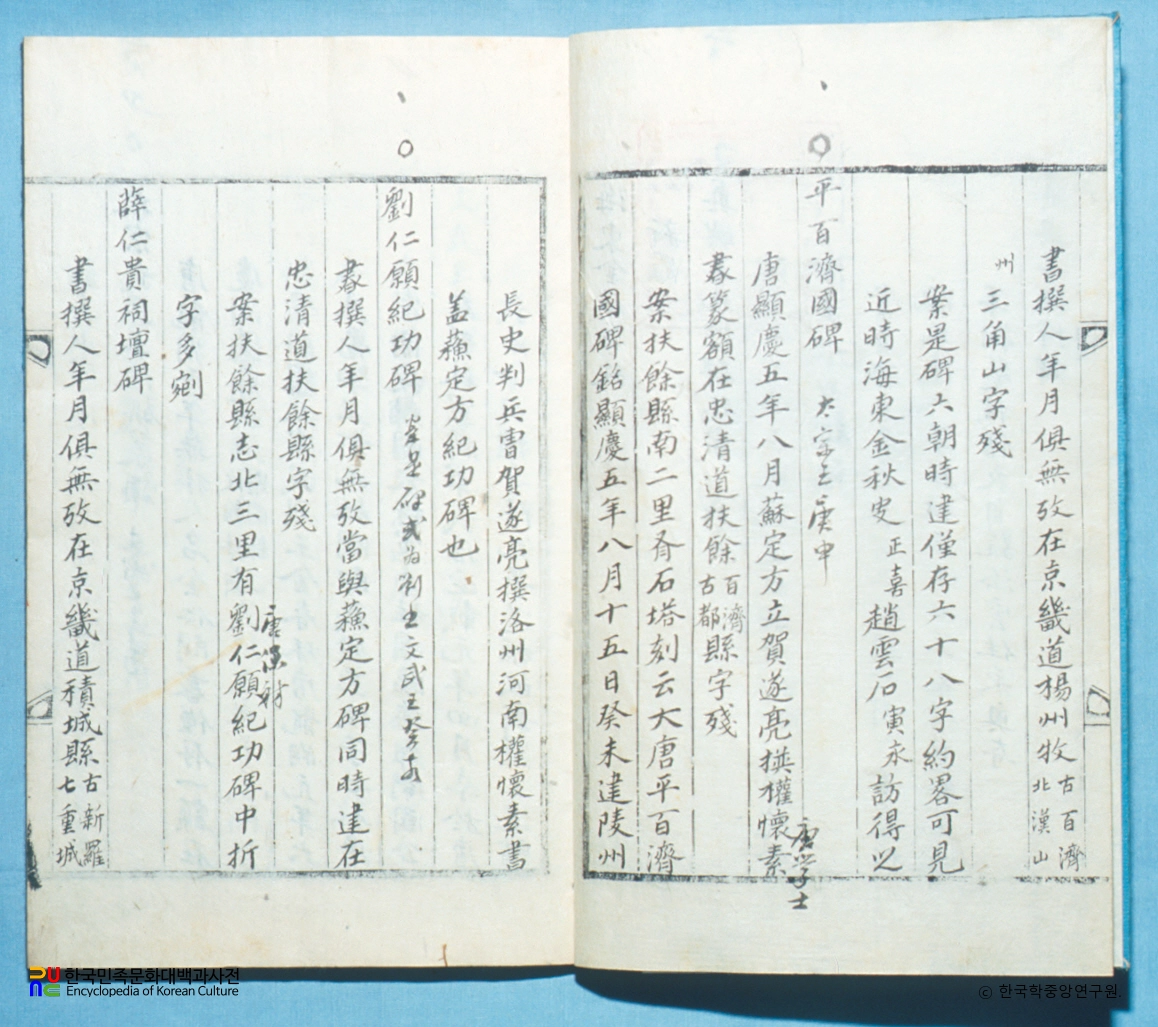 書撰人年月俱無攷在京畿道楊州牧古百濟北漢山
州三角山字殘
案是碑六朝時建僅存六十八字約畧可見
近時海東金秋史正喜趙雲石寅永訪得之
平百濟國碑 太宗王庚申
唐顯慶五年八月蘇定方立賀遂亮撰權懷素 唐學士
書篆額在忠清道扶餘百濟古都縣字殘
案扶餘縣南二里有石塔刻云大唐平百濟
國碑銘顯慶五年八月十五日癸未建陵州
長史判兵曺賀遂亮撰洛州河南權懷素書
盖蘓定方紀功碑也
劉仁願紀功碑 文武王癸亥
書撰人年月俱無攷當與蘓定方碑同時建在
忠清道扶餘縣字殘
案扶餘縣志北三里有劉仁願紀功碑中折
字多剜
薛仁貴祠壇碑
書撰人年月俱無攷在京畿道積城縣古新羅七重城
한국민족문화대백과사전
Encyclopedia of Korean Culture
ⓒ 한국학중앙연구원.